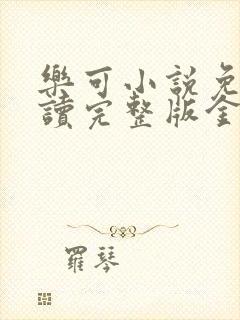 樂可小說免
讀完整版全
羅琴